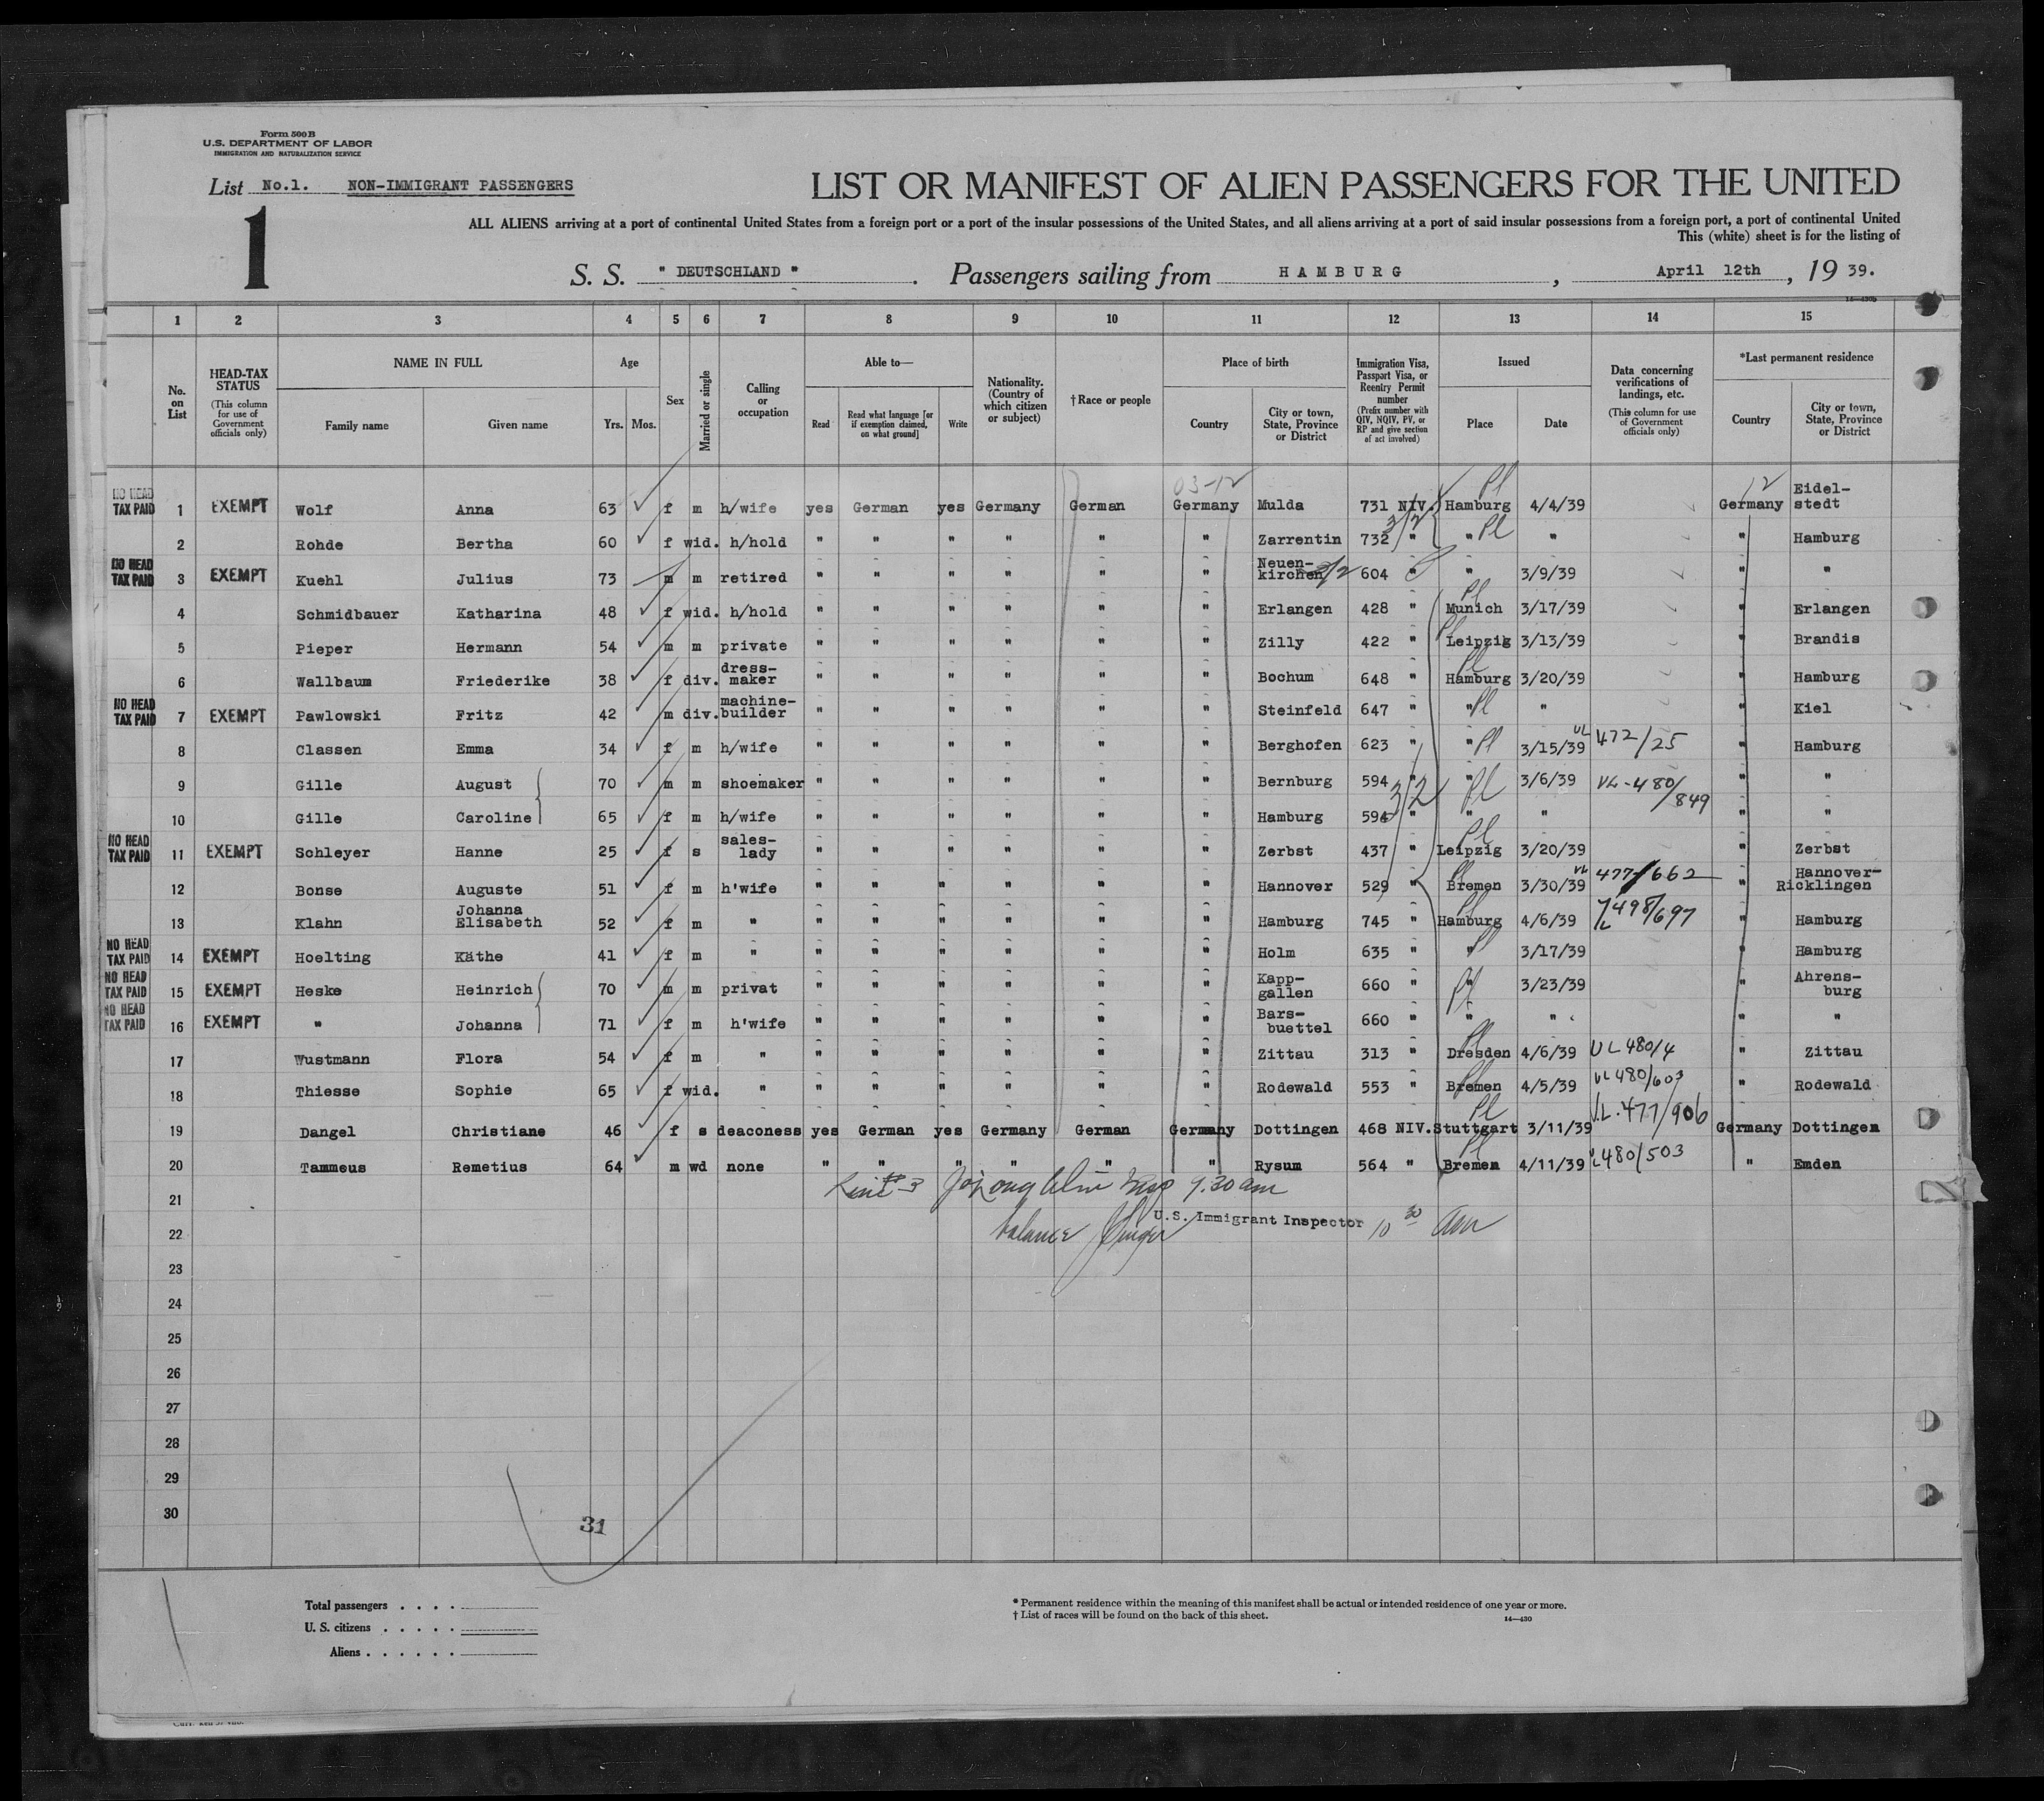 Form 500 B
U.S. DEPARTMENT OF LABOR
IMMIGRATION AND NATURALIZATION SERVICE
List No.1. NON-IMMIGRANT PASSENGERS
1
LIST OR MANIFEST OF ALIEN PASSENGERS FOR THE UNITED
ALL ALIENS arriving at a port of continental United States from a foreign port or a port of the insular possessions of the United States, and all aliens arriving at a port of said insular possessions from a foreign port, a port of continental United
This (white) sheet is for the listing of
S. S. " DEUTSCHLAND " . Passengers sailing from HAMBURG , April 12th , 19 39.
14—430b
1 2 3 4 5 6 7 8 9 10 11 12 13 14 15
No. on List
HEAD-TAX STATUS (This column for use of Government officials only)
NAME IN FULL Family name Given name
Age Yrs. Mos.
Sex
Married or single
Calling or occupation
Able to— Read Read what language [or if exemption claimed, on what ground] Write
Nationality. (Country of which citizen or subject)
†Race or people
Place of birth Country City or town, State, Province or District
Immigration Visa, Passport Visa, or Reentry Permit number (Prefix number with QIV, NQIV, PV, or RP and give section of act involved)
Issued Place Date
Data concerning verifications of landings, etc. (This column for use of Government officials only)
*Last permanent residence Country City or town, State, Province or District
03-12 12
NO HEAD TAX PAID 1 EXEMPT Wolf Anna 63 f m h/wife yes German yes Germany German Germany Mulda 731 NIV. Hamburg Pl 4/4/39 Germany Eidel-stedt
2 Rohde Bertha 60 f wid. h/hold " " " " " " Zarrentin 732 3/2 " " Pl " " Hamburg
NO HEAD TAX PAID 3 EXEMPT Kuehl Julius 73 m m retired " " " " " " Neuen-kirchen 3/2 604 " " 3/9/39 " "
4 Schmidbauer Katharina 48 f wid. h/hold " " " " " " Erlangen 428 " Munich Pl 3/17/39 " Erlangen
5 Pieper Hermann 54 m m private " " " " " " Zilly 422 " Leipzig Pl 3/13/39 " Brandis
6 Wallbaum Friederike 38 f div. dress-maker " " " " " " Bochum 648 " Hamburg Pl 3/20/39 " Hamburg
NO HEAD TAX PAID 7 EXEMPT Pawlowski Fritz 42 m div. machine-builder " " " " " " Steinfeld 647 " " Pl " " Kiel
8 Classen Emma 34 f m h/wife " " " " " " Berghofen 623 " " Pl 3/15/39 VL 472/25 " Hamburg
9 Gille August 70 m m shoemaker " " " " " " Bernburg 594 " " Pl 3/6/39 VL-480/849 " "
10 Gille Caroline 65 f m h/wife " " " " " " Hamburg 594 3/2 " " " " "
NO HEAD TAX PAID 11 EXEMPT Schleyer Hanne 25 f s sales-lady " " " " " " Zerbst 437 " Leipzig Pl 3/20/39 " Zerbst
12 Bonse Auguste 51 f m h'wife " " " " " " Hannover 529 " Bremen Pl 3/30/39 VL 477/662 " Hannover-Ricklingen
13 Klahn Johanna Elisabeth 52 f m " " " " " " " Hamburg 745 " Hamburg Pl 4/6/39 VL 498/697 " Hamburg
NO HEAD TAX PAID 14 EXEMPT Hoelting Käthe 41 f m " " " " " " " Holm 635 " " Pl 3/17/39 " Hamburg
NO HEAD TAX PAID 15 EXEMPT Heske Heinrich 70 m m privat " " " " " " Kapp-gallen 660 " " Pl 3/23/39 " Ahrens-burg
NO HEAD TAX PAID 16 EXEMPT " Johanna 71 f m h'wife " " " " " " Bars-buettel 660 " " " " "
17 Wustmann Flora 54 f m " " " " " " " Zittau 313 " Dresden Pl 4/6/39 VL 480/4 " Zittau
18 Thiesse Sophie 65 f wid. " " " " " " " Rodewald 553 " Bremen Pl 4/5/39 VL 480/603 " Rodewald
19 Dangel Christiane 46 f s deaconess yes German yes Germany German Germany Dottingen 468 NIV. Stuttgart Pl 3/11/39 V.L. 477/906 Germany Dottingen
20 Tammeus Remetius 64 m wd none " " " " " " Rysum 564 " Bremen Pl 4/11/39 VL 480/503 " Emden
21 3 9.30 am
U.S. Immigrant Inspector
22 balance 10 30 am
23
24
25
26
27
28
29
30
31
Total passengers . . . .
U. S. citizens . . . . .
Aliens . . . . . .
* Permanent residence within the meaning of this manifest shall be actual or intended residence of one year or more.
† List of races will be found on the back of this sheet.
14—430